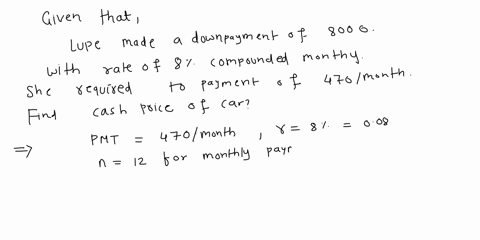 Given that,
Lupe made a downpayment of 8000.
with rate of 8% compounded monthy.
She required to payment of 470/month.
Find cash price of car?
⇒ PMT = 470/month , r = 8% = 0.08
n = 12 for monthly payr